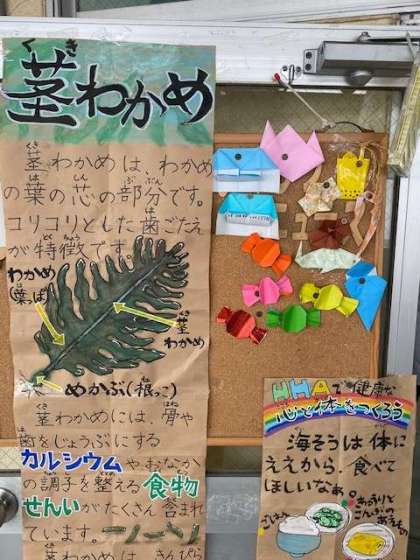 茎わかめ
くき
茎わかめは、わかめ
の葉の芯の部分です。
コリコリとした歯ごたえ
が特徴です。
わかめ
(葉っぱ)
茎
わかめ
めかぶ(根っこ)
茎わかめには、骨や
歯をじょうぶにする
カルシウムやおなか
の調子を整える食物
せんいがたくさん含まれ
ています。
茎わかめは、きんぴら
で健康な
心と体をつくろう
海そうは体に
ええから、食べて
ほしいなぁ。
ごはん